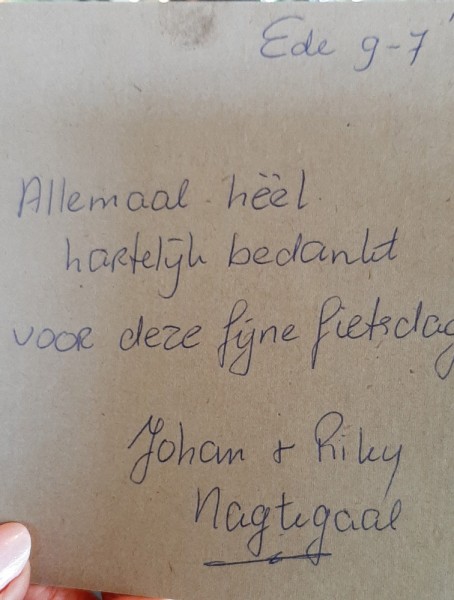 Ede 9-7'
Allemaal hëël
hartelijk bedankt
voor deze fijne fietsdag
Johan + Riky
Nagtegaal